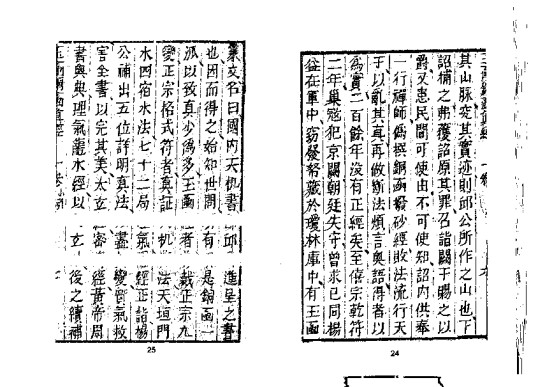 其山脉交其實迹則邱公所作之山也下
詔捕之弗獲詔原其罪召詣闕于賜之以
爵又患民間可使由不可使知詔内供奉
一行禪師偽撰銅函撥砂經敗法流行天
于以亂其真再敢断法煩言奥語得者以
為實二百餘年没有正經矣至僖宗乾符
二年巢寇犯京闕朝廷失守曾求已同楊
益在軍中竊發帑藏於瓊林庫中有玉函
24
篆文名曰國内天机書邱進呈之書
也因而得之始知世間有是錦函一
派以致真少偽多玉函者載正宗九
變正宗格式符者真証机法天垣門
水四宿水法七十二局氣經正詣楊
公補出五位詳明真法盡變窮氣救
害全書以完其美太玄密經黄帝周
書與奥理氣龍水經以玄後之續補
25